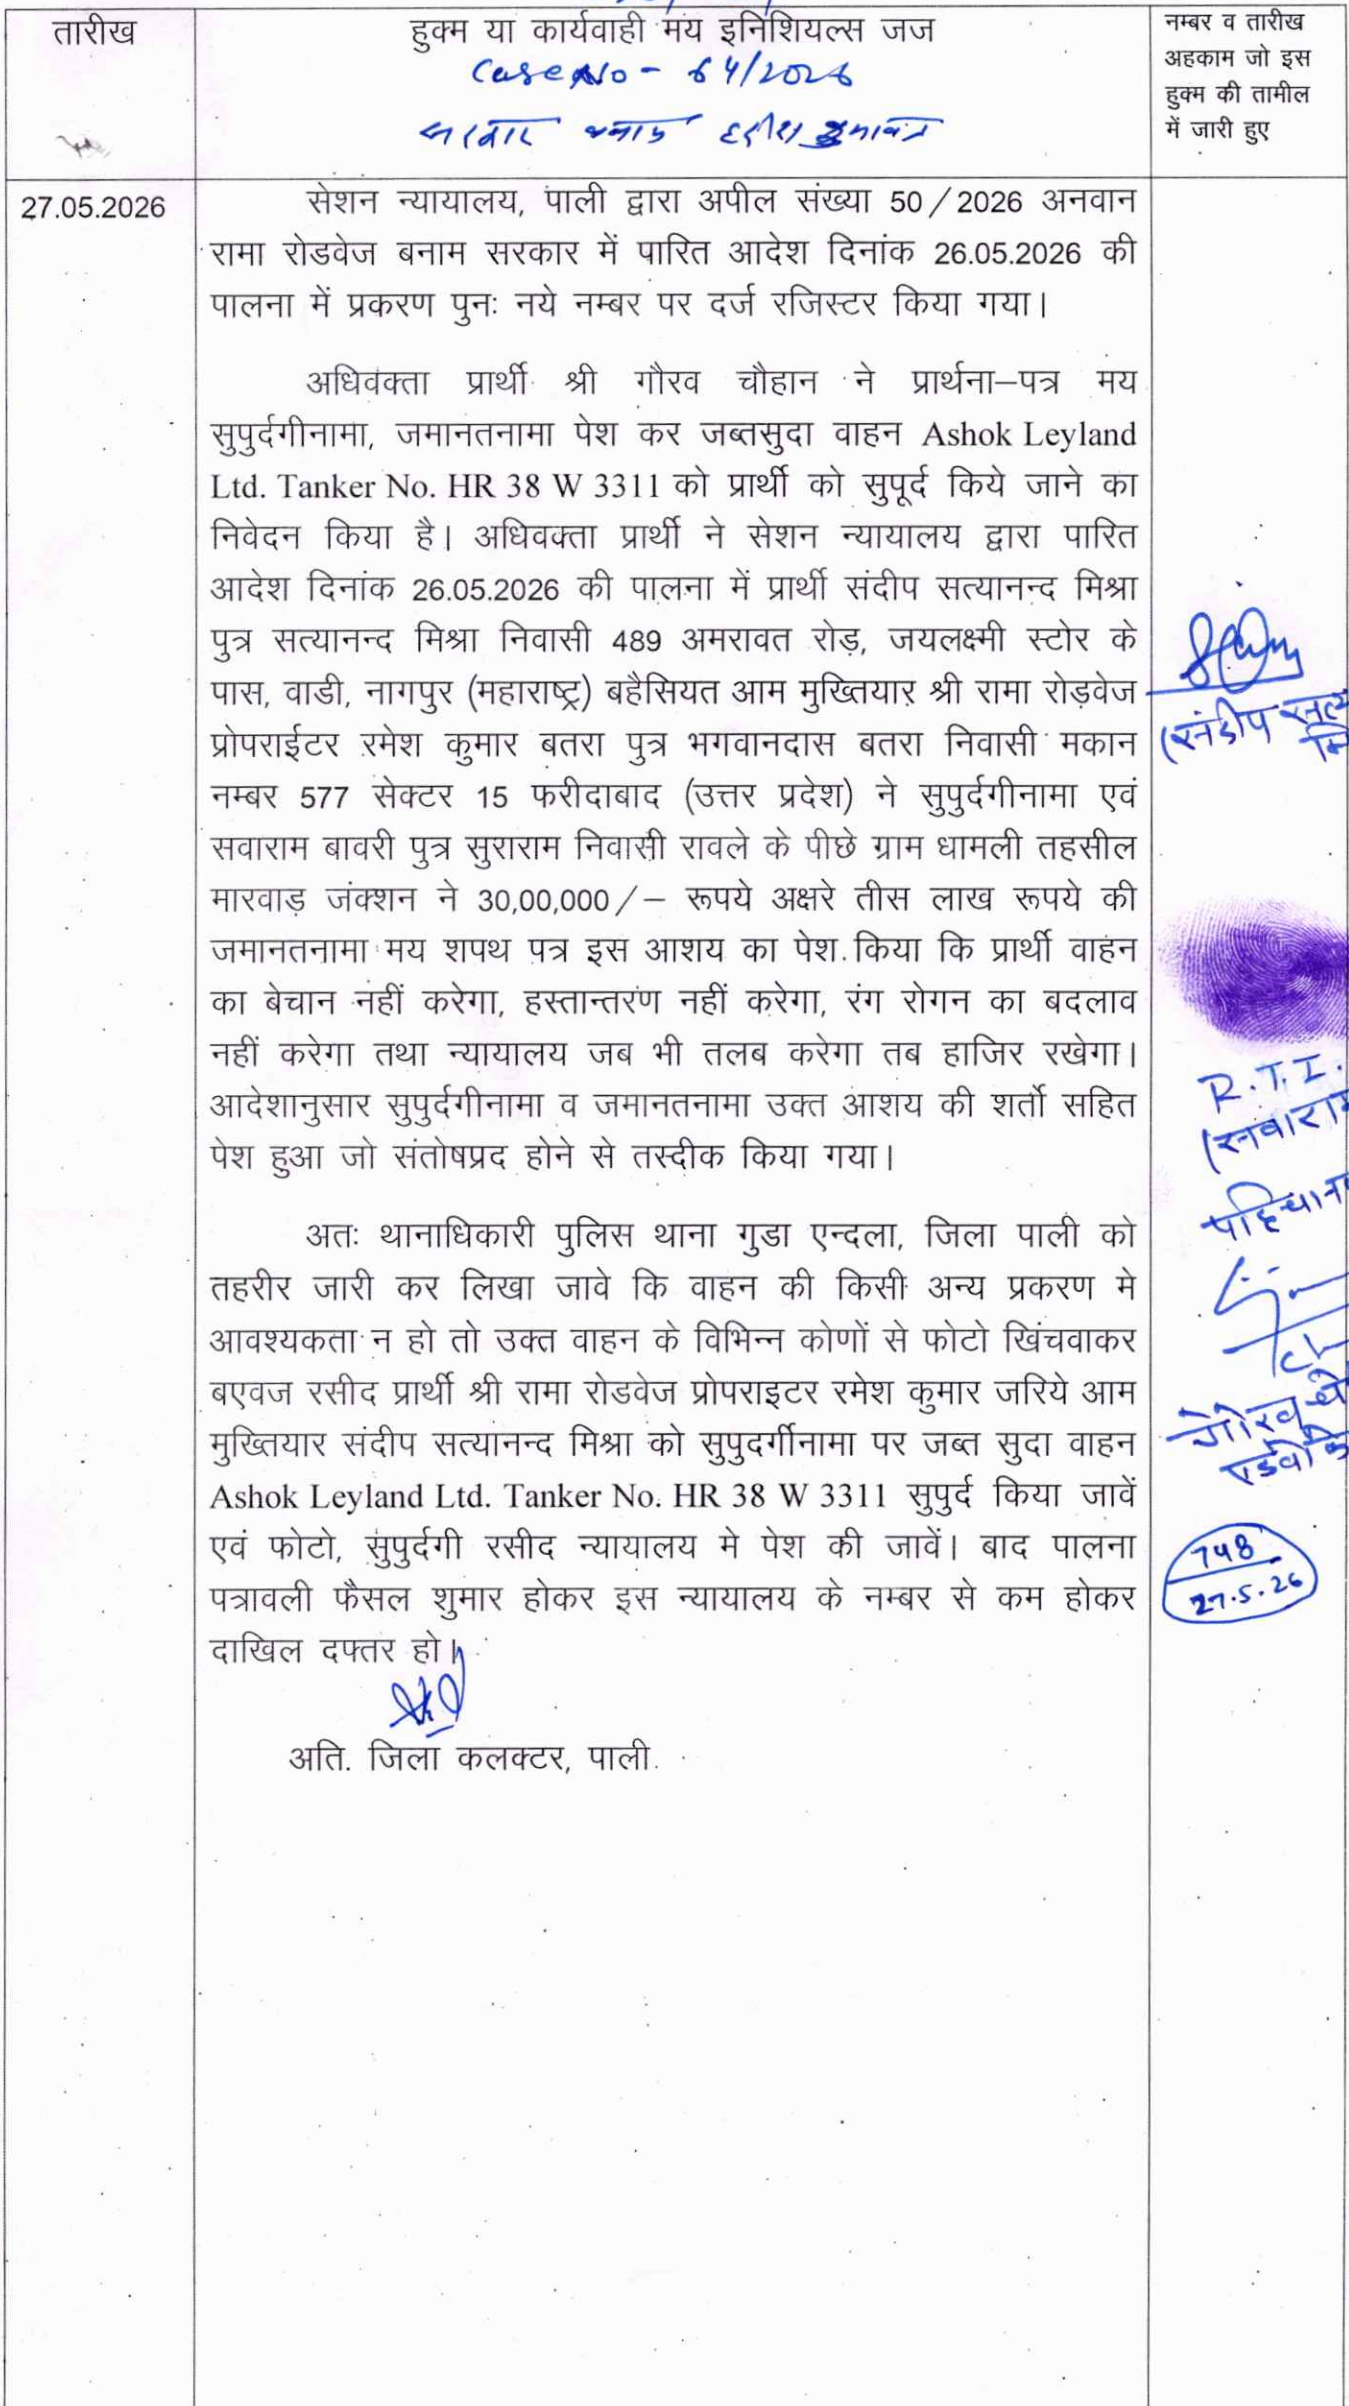 तारीख
हुक्म या कार्यवाही मय इनिशियल्स जज
नम्बर व तारीख
अहकाम जो इस
हुक्म की तामील
में जारी हुए
Case No - 64/2026
सरकार बनाम हरीश कुमावत
27.05.2026
सेशन न्यायालय, पाली द्वारा अपील संख्या 50/2026 अनवान
रामा रोडवेज बनाम सरकार में पारित आदेश दिनांक 26.05.2026 की
पालना में प्रकरण पुनः नये नम्बर पर दर्ज रजिस्टर किया गया।
अधिवक्ता प्रार्थी श्री गौरव चौहान ने प्रार्थना–पत्र मय
सुपुर्दगीनामा, जमानतनामा पेश कर जब्तसुदा वाहन Ashok Leyland
Ltd. Tanker No. HR 38 W 3311 को प्रार्थी को सुपूर्द किये जाने का
निवेदन किया है। अधिवक्ता प्रार्थी ने सेशन न्यायालय द्वारा पारित
आदेश दिनांक 26.05.2026 की पालना में प्रार्थी संदीप सत्यानन्द मिश्रा
पुत्र सत्यानन्द मिश्रा निवासी 489 अमरावत रोड़, जयलक्ष्मी स्टोर के
पास, वाडी, नागपुर (महाराष्ट्र) बहैसियत आम मुख्तियार श्री रामा रोड़वेज
प्रोपराईटर रमेश कुमार बतरा पुत्र भगवानदास बतरा निवासी मकान
नम्बर 577 सेक्टर 15 फरीदाबाद (उत्तर प्रदेश) ने सुपुर्दगीनामा एवं
सवाराम बावरी पुत्र सुराराम निवासी रावले के पीछे ग्राम धामली तहसील
मारवाड़ जंक्शन ने 30,00,000/– रूपये अक्षरे तीस लाख रूपये की
जमानतनामा मय शपथ पत्र इस आशय का पेश किया कि प्रार्थी वाहन
का बेचान नहीं करेगा, हस्तान्तरण नहीं करेगा, रंग रोगन का बदलाव
नहीं करेगा तथा न्यायालय जब भी तलब करेगा तब हाजिर रखेगा।
आदेशानुसार सुपुर्दगीनामा व जमानतनामा उक्त आशय की शर्तो सहित
पेश हुआ जो संतोषप्रद होने से तस्दीक किया गया।
अतः थानाधिकारी पुलिस थाना गुडा एन्दला, जिला पाली को
तहरीर जारी कर लिखा जावे कि वाहन की किसी अन्य प्रकरण मे
आवश्यकता न हो तो उक्त वाहन के विभिन्न कोणों से फोटो खिंचवाकर
बएवज रसीद प्रार्थी श्री रामा रोडवेज प्रोपराइटर रमेश कुमार जरिये आम
मुख्तियार संदीप सत्यानन्द मिश्रा को सुपुदर्गीनामा पर जब्त सुदा वाहन
Ashok Leyland Ltd. Tanker No. HR 38 W 3311 सुपुर्द किया जावें
एवं फोटो, सुपुर्दगी रसीद न्यायालय मे पेश की जावें। बाद पालना
पत्रावली फैसल शुमार होकर इस न्यायालय के नम्बर से कम होकर
दाखिल दफ्तर हो।
अति. जिला कलक्टर, पाली
(संदीप सत्य
मि
R.T.I.
(सवाराम
पहिचान
गौरव चौ
एडवोके
748
27.5.26